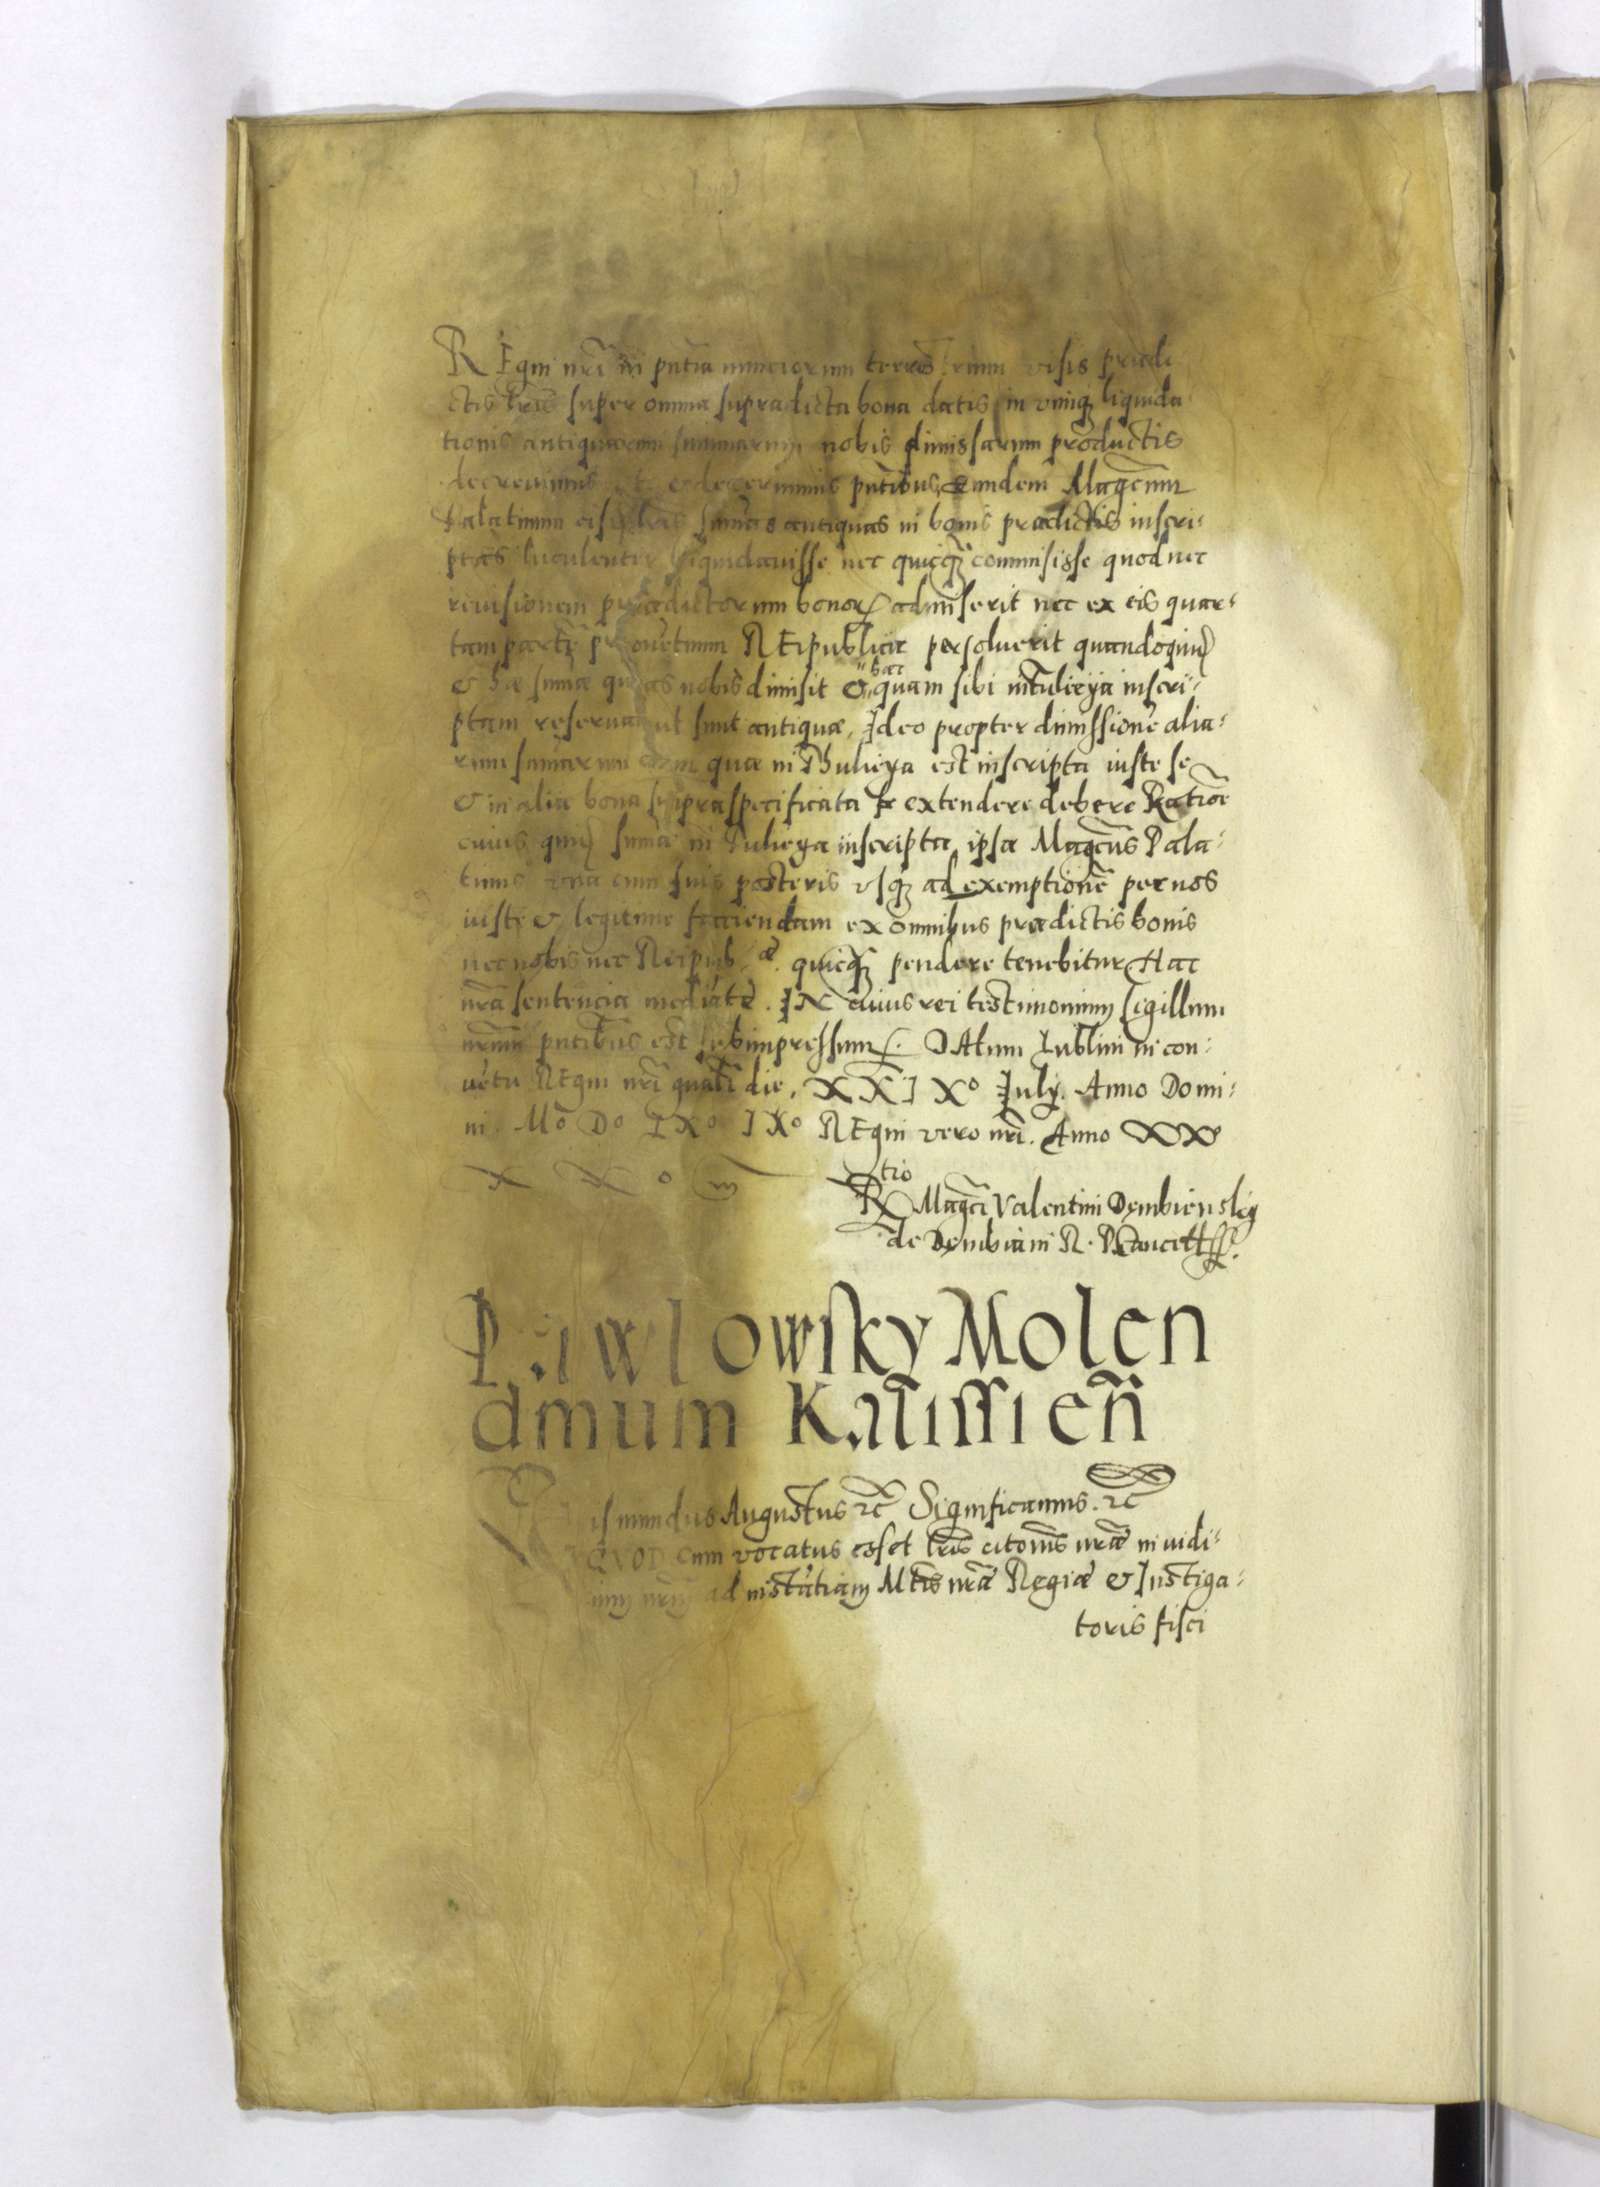 REgni nrī in pñtia nunciorum terrēs rium visis prædi
ctis lrīs super omnia supradicta bona datis in vimq liquida
tionis antiquarum summarum nobis dimissarum productis
decrevimus et decernimus pñtibus, Eundem Magcum
Palatinum eisdem summas antiquas in bonis prædictis inscri-
ptas luculenter liquidavisse nec quicq commisisse quod nec
revisionem prædictorum bonor admiserit nec ex eis quar-
tam parte proventuum REipublicæ persolverit quandoquid
& hæ sumæ quas nobis dimisit & hæc quam sibi in Tulieya inscri-
ptam reservat ut sunt antiquæ, Ideo propter dimissione alia-
rum sumarum eam quæ in Thulieya est inscripta iuste se
& in alia bona supraspecificata se extendere debere Ratione
cuius quid suma in Tulieya inscripta, ipse Magcus Pala-
tinus vna cum suis posteris vsq ad exemptione per nos
iuste & legitime faciendam ex omnibus prædictis bonis
nec nobis nec Reipub. æ. quicq pendere tenebitur Hac
nrā sentencia mediate. IN cuius rei testimonium sigillum
nrum pñtibus est subimpressum. DAtum Lublini in con-
vētu REgni nrī gnali die, XXIXo July. Anno Domi-
ni. Mo Do LXo IXo REgni vero nrī. Anno XX
X X o
Rtio Magci Valentini Dembiensky
de Dembiani R. P. Cancell
Pawlowsky Molen
dinum Kalissien
ismundus Augustus rc Significamus. rc
QVOD Cum vocatus esset lrīs citonis nræ in vidi-
um nrm ad instātiam Mtis nræ Regiæ & Instiga-
toris fisci